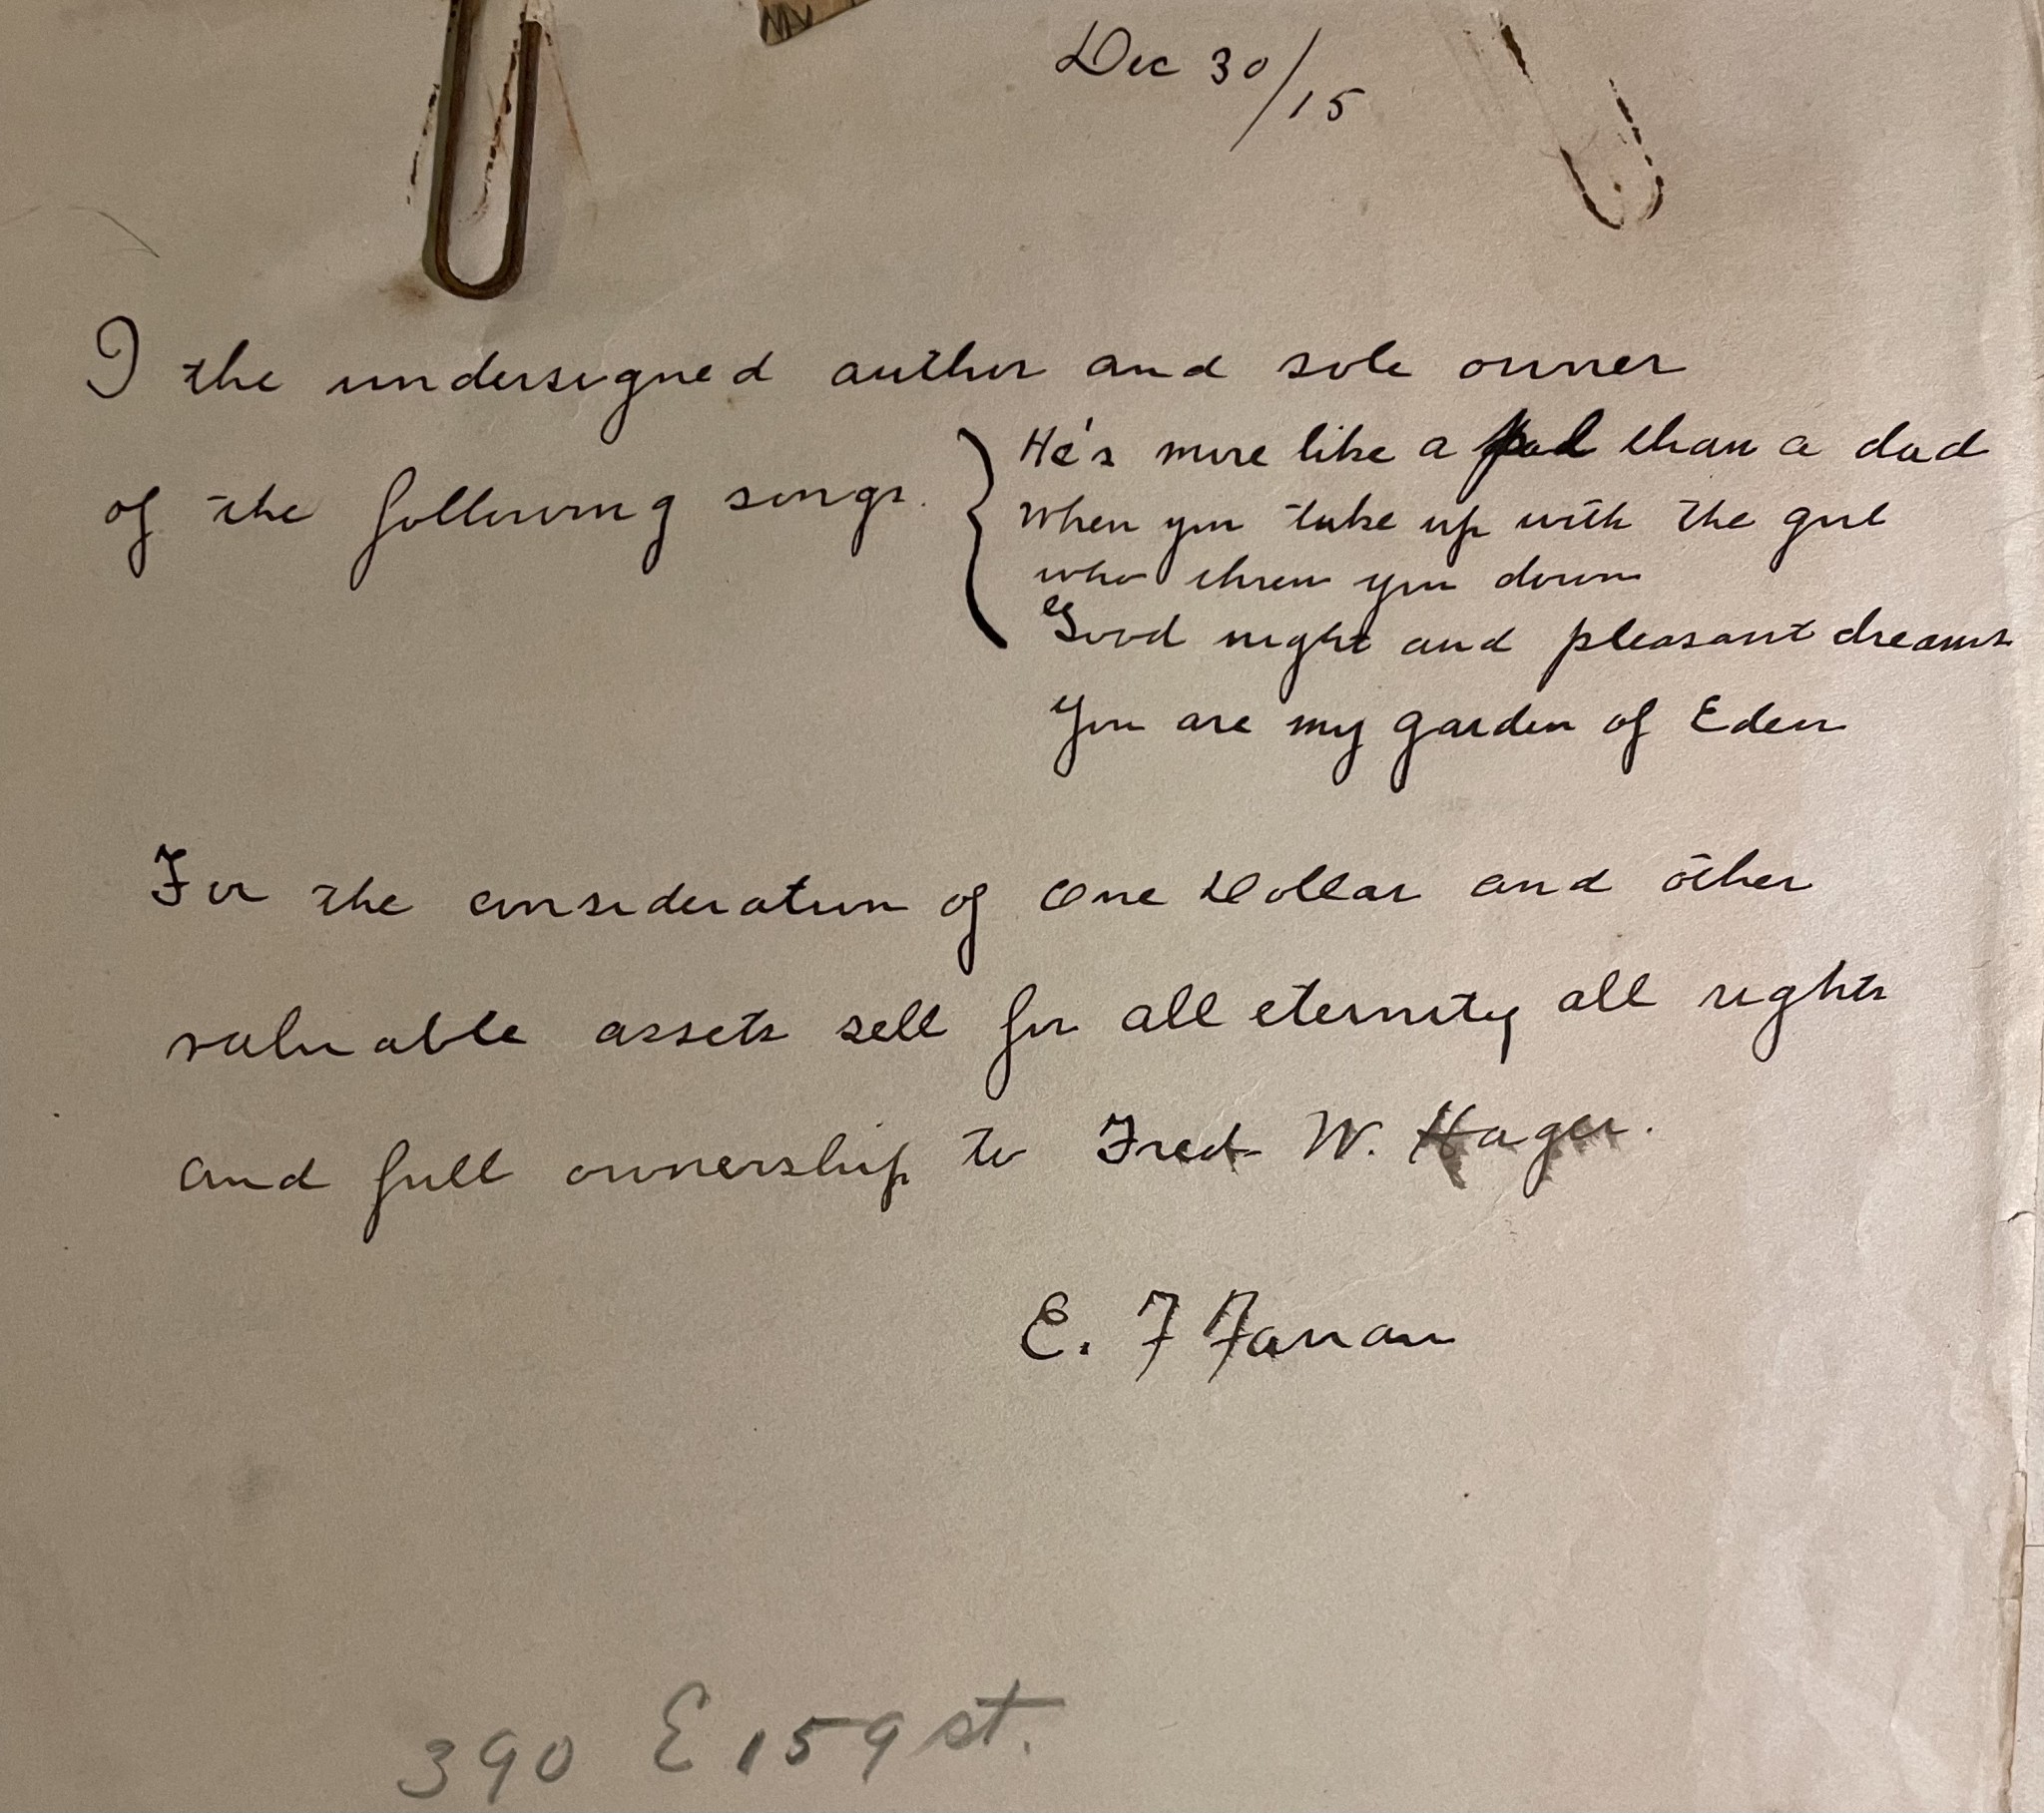 My
Dec 30/15
I the undersigned author and sole owner
of the following songs. { He's more like a pal than a dad
When you take up with the girl
who threw you down
Good night and pleasant dreams
You are my garden of Eden
For the consideration of One Dollar and other
valuable assets sell for all eternity all rights
and full ownership to Fred W. Hager.
E. F Farran
390 E 159 st.